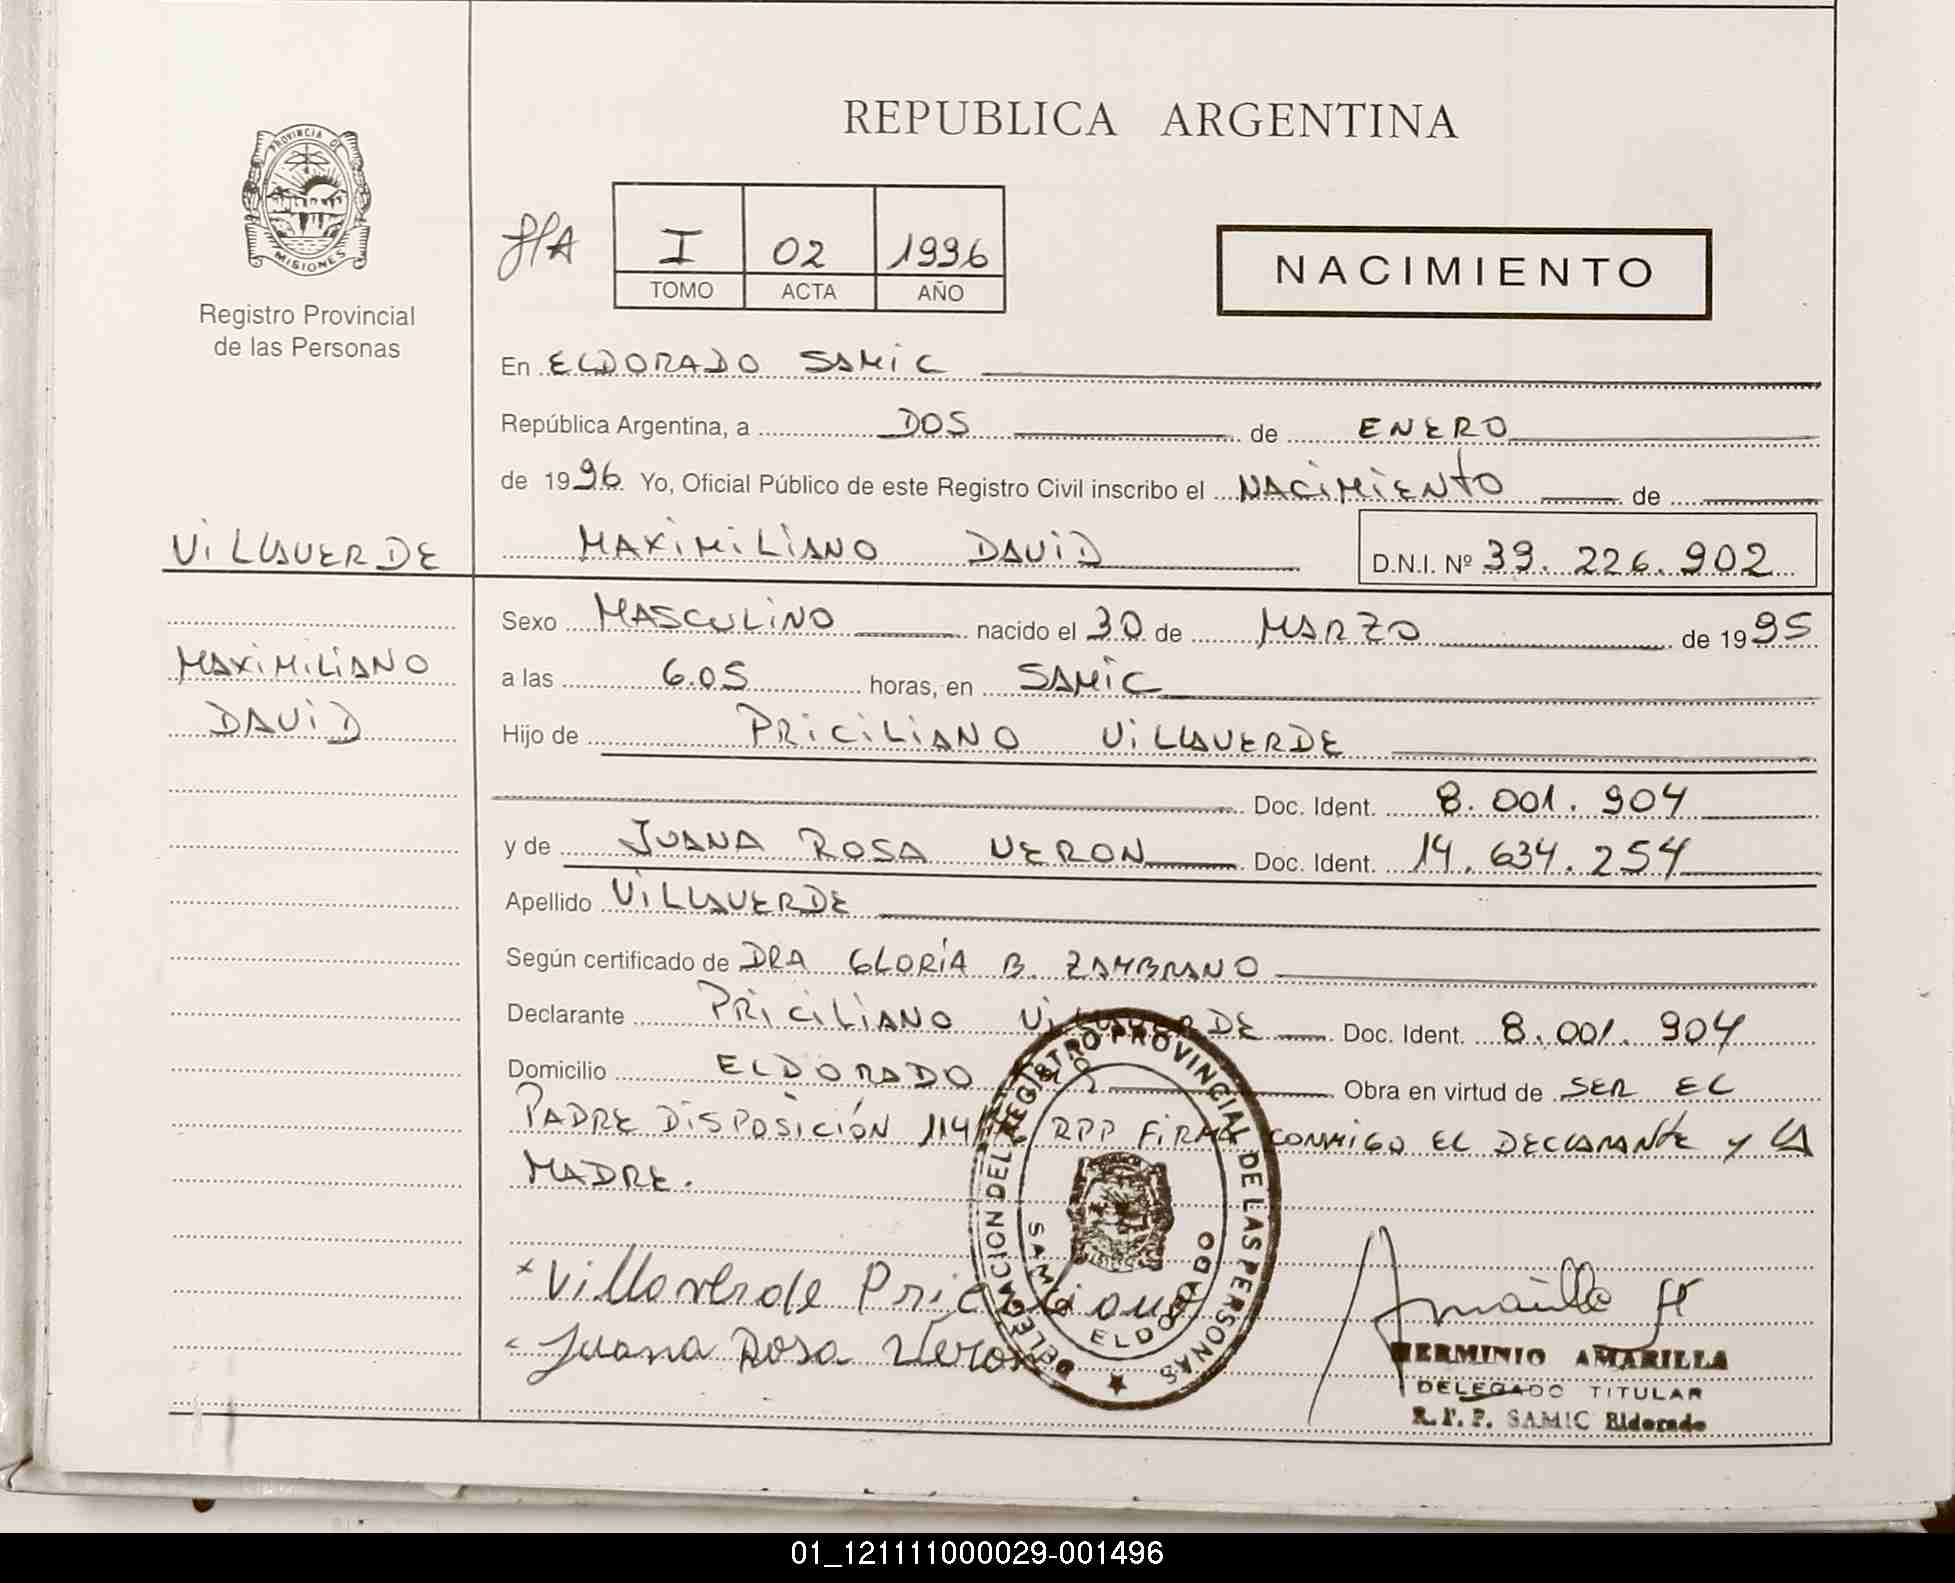 REPUBLICA ARGENTINA
PROVINCIA DE
MISIONES
Registro Provincial
de las Personas
I 02 1996
TOMO ACTA AÑO
NACIMIENTO
En ELDORADO SAMIC
República Argentina, a DOS de ENERO
de 1996 Yo, Oficial Público de este Registro Civil inscribo el NACIMIENTO de
VILLAVERDE
MAXIMILIANO DAVID D.N.I. Nº 39.226.902
Sexo MASCULINO nacido el 30 de MARZO de 1995
MAXIMILIANO
a las 6.05 horas, en SAMIC
DAVID
Hijo de PRICILIANO VILLAVERDE
Doc. Ident. 8.001.904
y de JUANA ROSA VERON Doc. Ident. 14.634.254
Apellido VILLAVERDE
Según certificado de DRA GLORIA B. ZAMBRANO
Declarante PRICILIANO VILLAVERDE Doc. Ident. 8.001.904
Domicilio ELDORADO Obra en virtud de SER EL
PADRE DISPOSICIÓN 114 RPP FIRMA CONMIGO EL DECLARANTE Y LA
MADRE.
DELEGACION DEL REGISTRO PROVINCIAL DE LAS PERSONAS
SAMIC ELDORADO
x Villaverde Priciliano
Juana Rosa Veron
Amarilla H
HERMINIO AMARILLA
DELEGADO TITULAR
R.P.P. SAMIC Eldorado
01_121111000029-001496